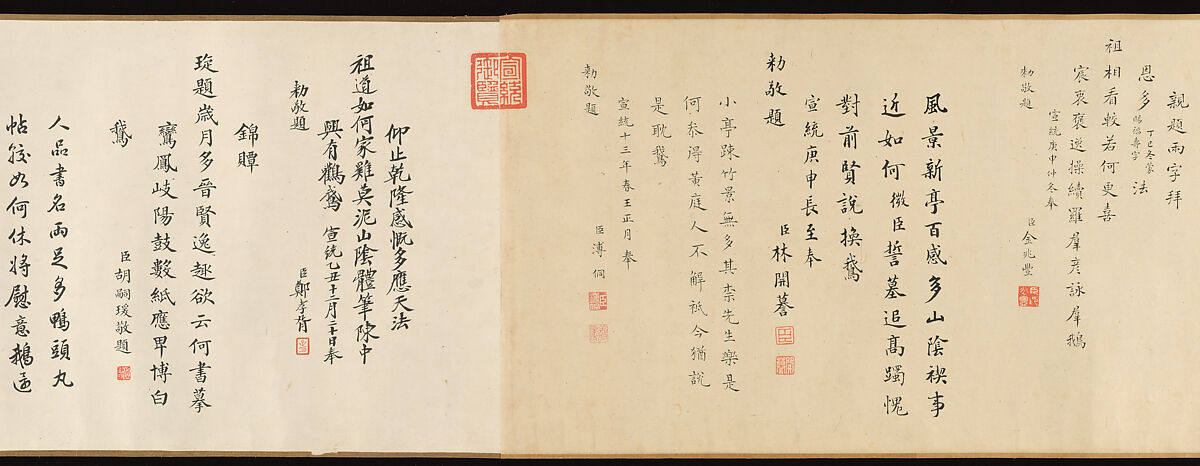 親題兩字拜
恩多丁巳冬蒙賜福壽字法
祖相看較若何更喜
宸衷褒逸操續羅羣彦詠羣鵝
宣統庚申仲冬奉
勑敬題
臣金兆豐
風景新亭百感多山陰禊事
近如何微臣誓墓追高躅愧
對前賢說換鵞
宣統庚申長至奉
勑敬題
臣林開謩
小亭踈竹景無多其柰先生樂是
何参得黃庭人不解祇今猶說
是耽鵞
宣統十三年春王正月奉
勑敬題
臣溥侗
宣統御覽
仰止乾隆感慨多應天法
祖道如何家雞莫泥山陰體筆陳中
興有鸛鵞
宣統乙丑十二月二十日奉
勑敬題
臣鄭孝胥
錦贉
琁題歲月多晉賢逸趣欲云何書摹
鸞鳳岐陽鼓數紙應畀博白
鵞
臣胡嗣瑗敬題
人品書名兩足多鴨頭丸
帖較如何休將慰意鵝逕